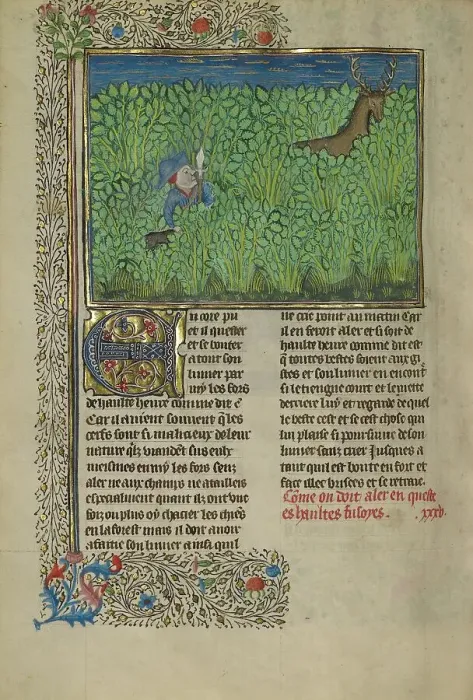 ncore puis
et il quester
et se bouter
a tout son
limier par
my les bois
de haulte heure comme dit est
Car il avient souvent que les
cerfs sont si malicieux de leur
nature quilz viandent sus eulx
meismes enmy les bois senz
aler ne aux champs ne ataillies
especialment quant ilz ont ouy
les chiens
en la forest mais il doit avoir
afaitie son limier ainsi quil
ne crie point au matin Car
il en feroit aler et si soit de
haulte heure comme dit est
que toutes bestes soient aux gi
stes et son limier en encontre
si le tiengne court et le mette
derriere luy et regarde de quel
le beste cest et se cest chose qui
lui plaise si poursuive de son
limier sanz crier Jusques a
tant quil est boute en fort et
face illec brisees et se retraie.
Come on doit aler en queste
es haultes fustoyes. .xxxv.